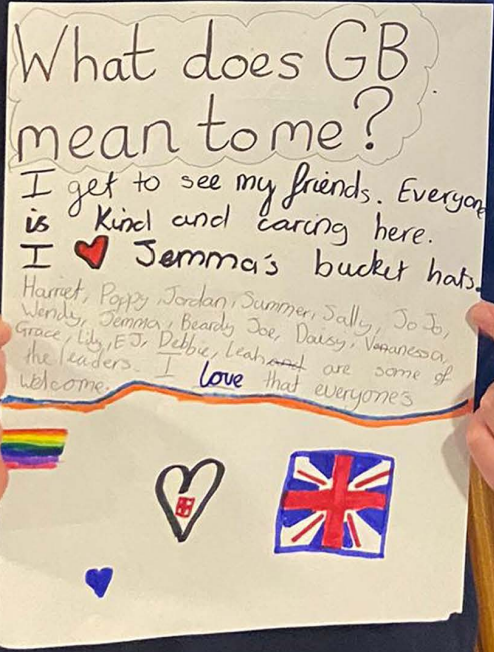 What does GB
mean to me?
I get to see my friends. Everyone
is Kind and caring here.
I ❤ Jemma's bucket hats.
Harriet, Poppy, Jordan, Summer, Sally, JoJo,
Wendy, Jemma, Beardy Joe, Daisy, Vanessa,
Grace, Lily, EJ, Debbie, Leah and are some of
the leaders. I love that everyone's
welcome.